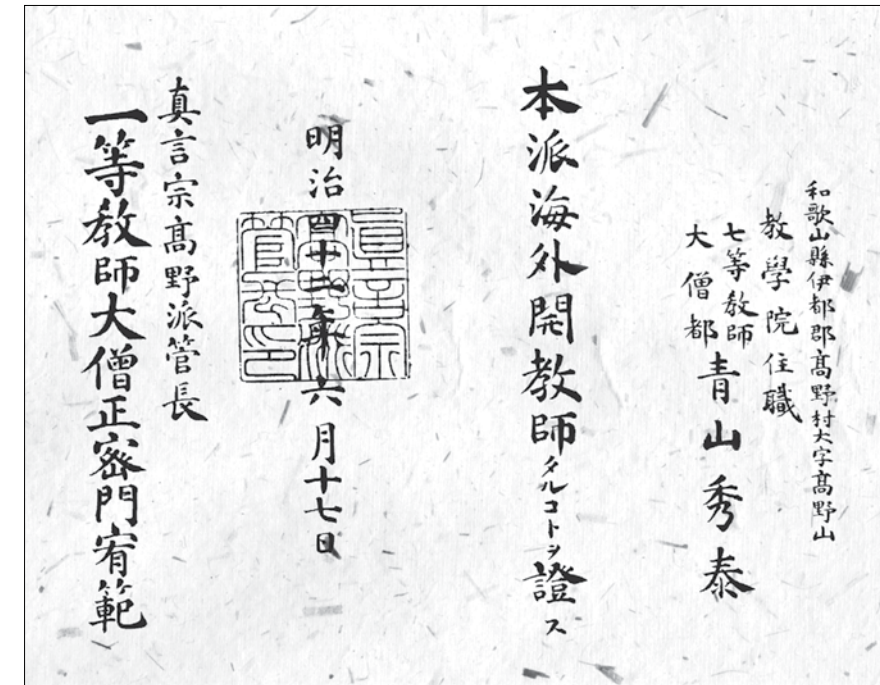 和歌山縣伊都郡髙野村大字髙野山
教學院住職
七等教師
大僧都
青山秀泰
本派海外開教師タルコトヲ證ス
明治四十二年六月十七日
真言宗髙野派管長
一等教師大僧正密門宥範